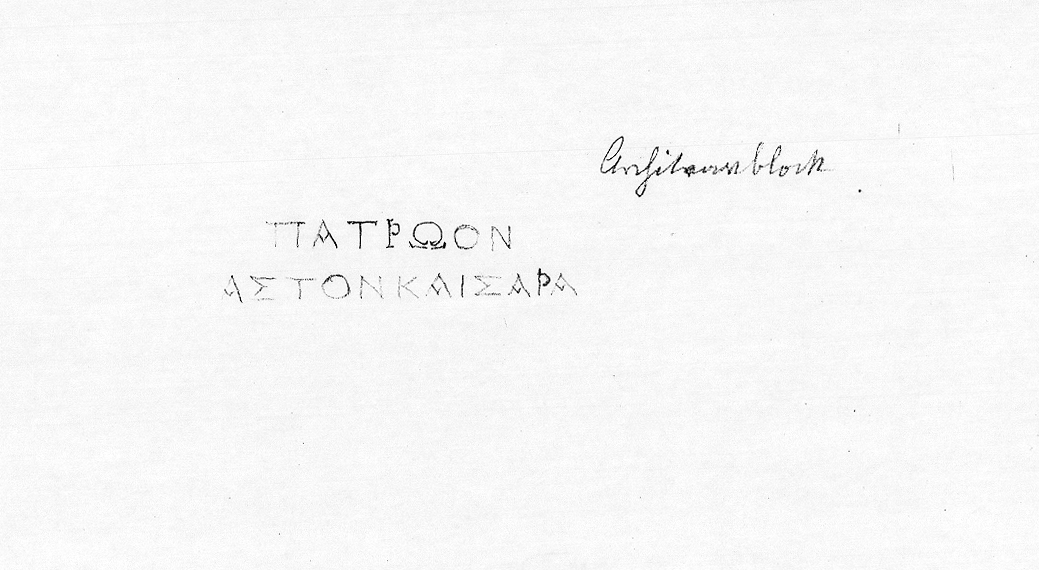 Architravblock
ΠΑΤΡΩΟΝ
ΑΣΤΟΝΚΑΙΣΑΡΑ